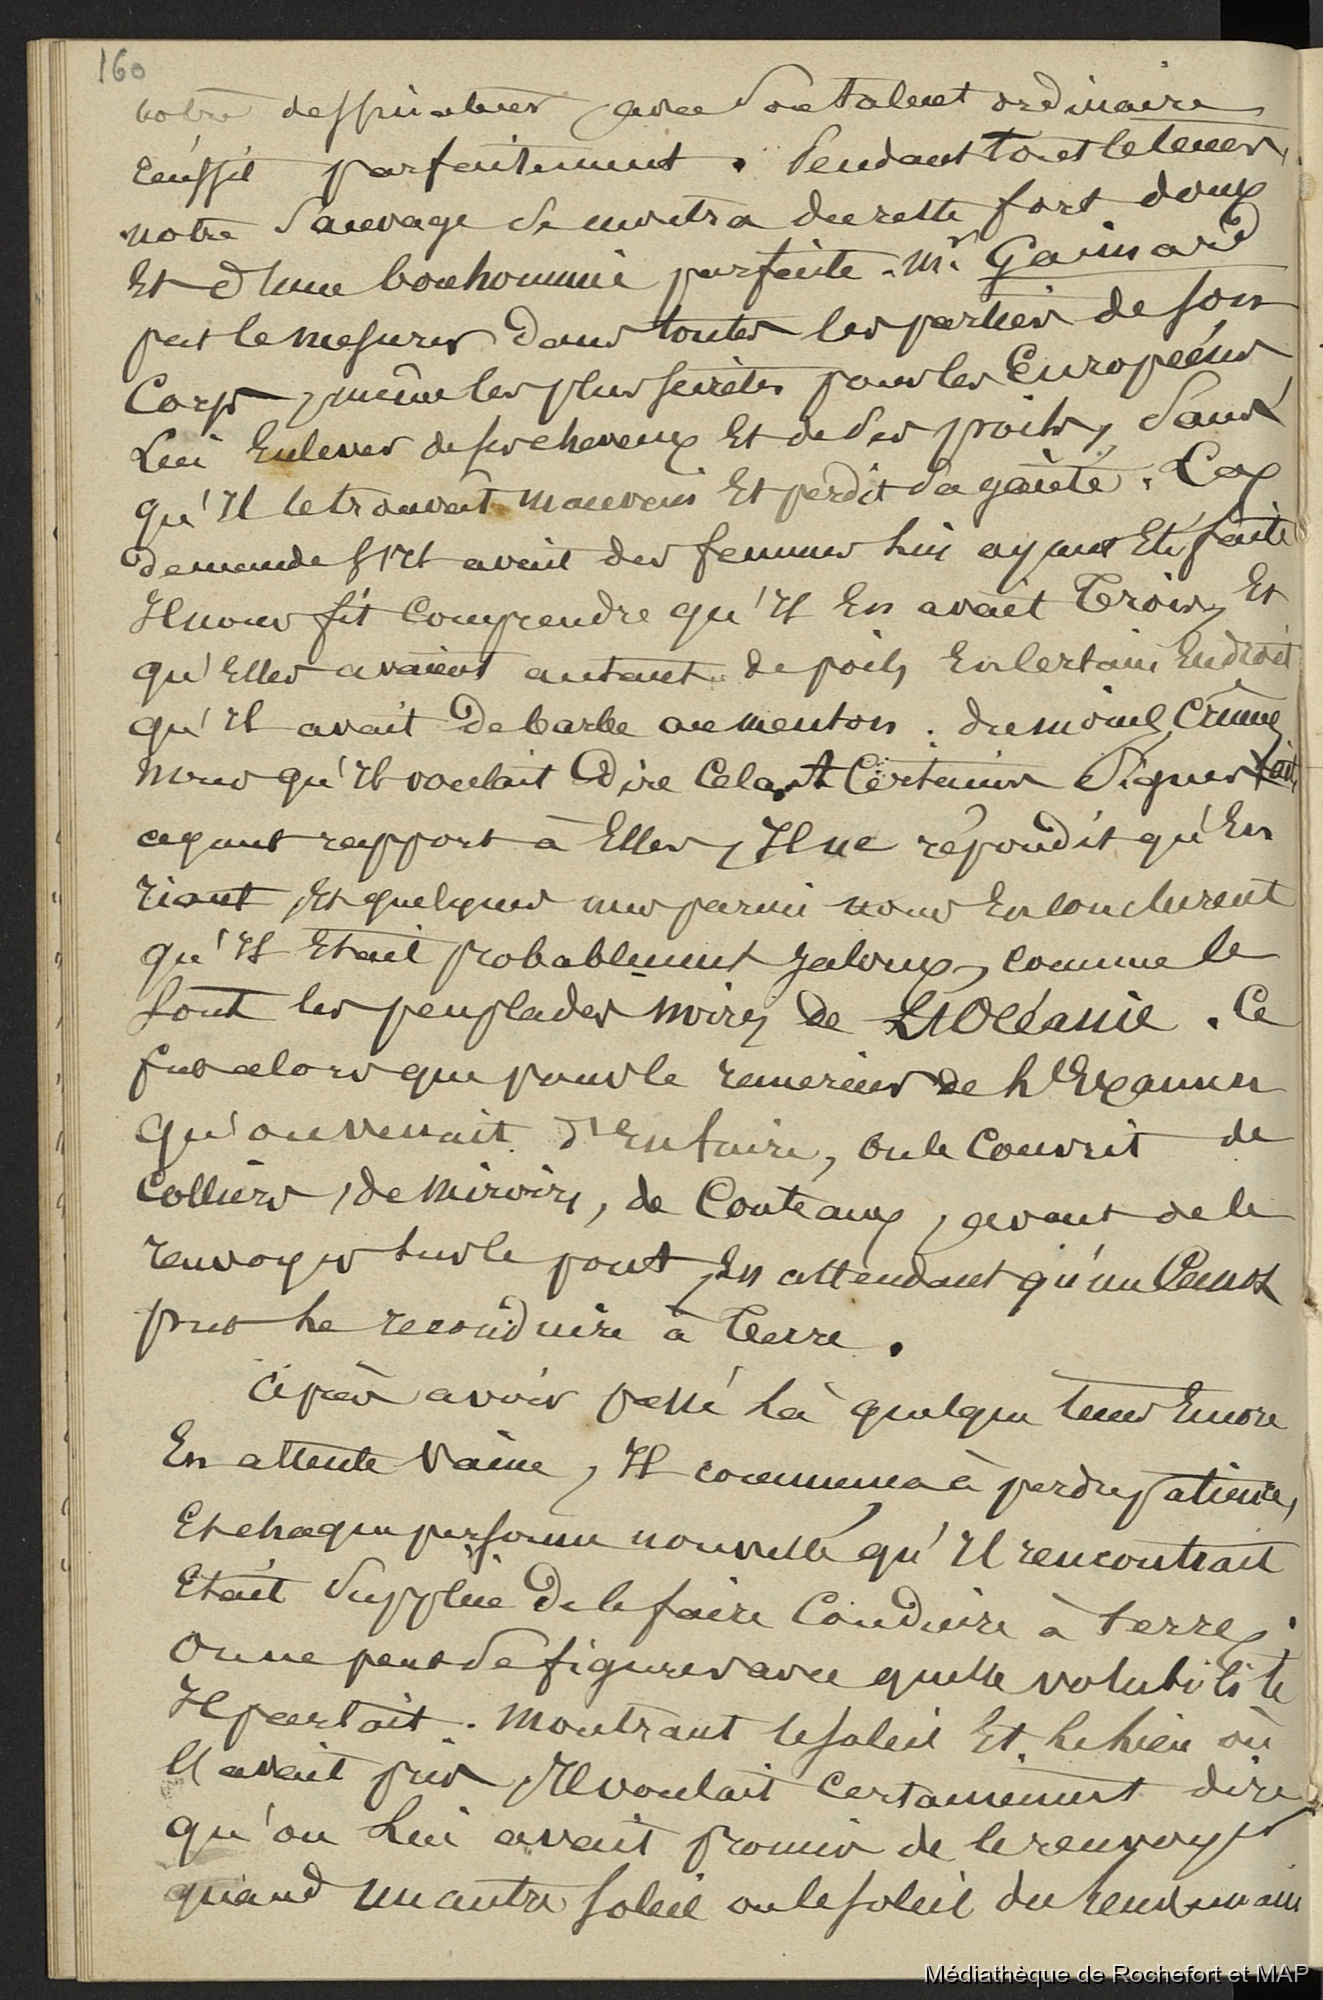 160
notre dessinateur avec son talent ordinaire
réussit parfaitement. Pendant tout le tems,
notre Sauvage se montra du reste fort doux
Et d'une bonhommie parfaite. Mr. Gaimard
put le mesurer Dans toutes les parties de son
Corps, même les plus secrètes pour les Européens
Lui Enlever de ses cheveux Et de Ses poils, Sans
qu'Il le trouvât mauvais Et perdit Sa gaieté. La
demande s'Il avait des femmes lui ayant Eté faite
Il nous fit Comprendre qu'Il En avait Trois, Et
qu'Elles avaient autant de poils En Certain Endroit
qu'Il avait De barbe au menton. du moins, Crûmes
nous qu'Il voulait Dire Cela. A Certains Signes
ayant rapport à Elles, Il ne répondit qu'En
riant, Et quelques uns parmi nous En conclurent
qu'Il Etait probablement jaloux, comme le
sont les peuplades noires de L'Océanie. Ce
fut alors que pour le remercier de L'Examen
qu'on venait D'En faire, on le Couvrit de
Colliers, de miroirs, de Couteaux, avant de le
renvoyer sur le pont, En attendant qu'un Canot
put le reconduire à Terre.
Après avoir passé là quelque tems Encore
En attente Vaine, Il commença à perdre patience,
Et chaque personne nouvelle qu'Il rencontrait
Etait Suppliée De le faire Conduire à terre.
On ne peut Se figurer avec quelle volubilité
Il parlait. Montrant le Soleil Et le lieu où
Il avait pris, Il voulait Certainement dire
qu'on Lui avait promis de le renvoyer
quand un autre soleil ou le soleil du lendemain
Médiathèque de Rochefort et MAP